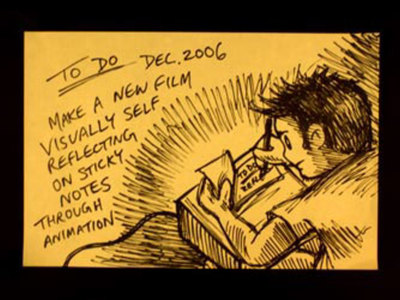 TO DO DEC. 2006
MAKE A NEW FILM
VISUALLY SELF
REFLECTING
ON STICKY
NOTES
THROUGH
ANIMATION